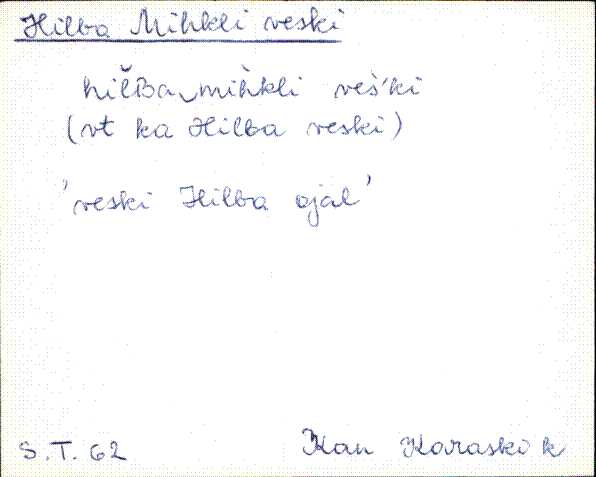 Hilba Mihkli veski
hilʙa‿mìhkli veś'ki
(vt ka Hilba veski)
'veski Hilba ojal'
S.T. 62 Kan Koraskok